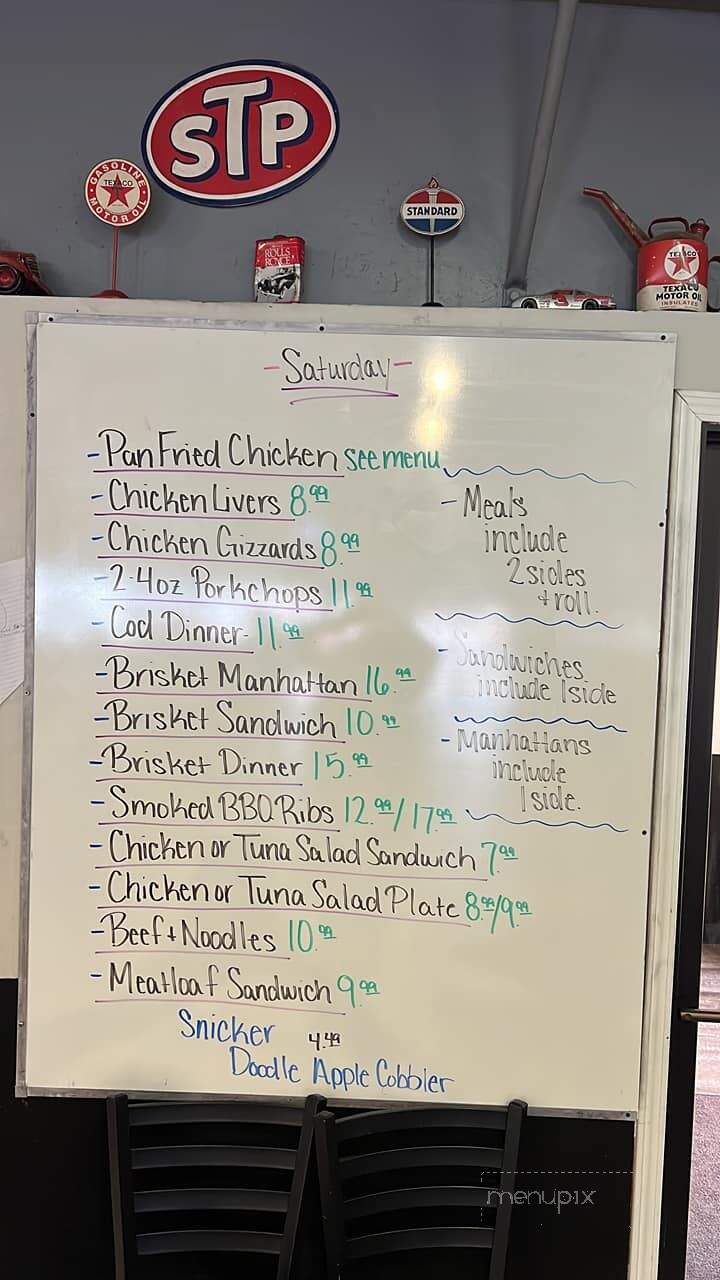 STP
GASOLINE
TEXACO
MOTOR OIL
STANDARD
ROLLS
ROYCE
3
TEXACO
TEXACO
MOTOR OIL
INSULATED
- Saturday -
- Pan Fried Chicken see menu
- Chicken Livers 8.99
- Chicken Gizzards 8.99
- 2-4oz Porkchops 11.99
- Cod Dinner- 11.99
- Brisket Manhattan 16.99
- Brisket Sandwich 10.99
- Brisket Dinner 15.99
- Smoked BBQ Ribs 12.99/17.99
- Chicken or Tuna Salad Sandwich 7.99
- Chicken or Tuna Salad Plate 8.99/9.99
- Beef + Noodles 10.99
- Meatloaf Sandwich 9.99
Snicker 4.49
Doodle Apple Cobbler
- Meals
include
2 sides
+ roll.
- Sandwiches
include 1 side
- Manhattans
include
1 side.
menupix